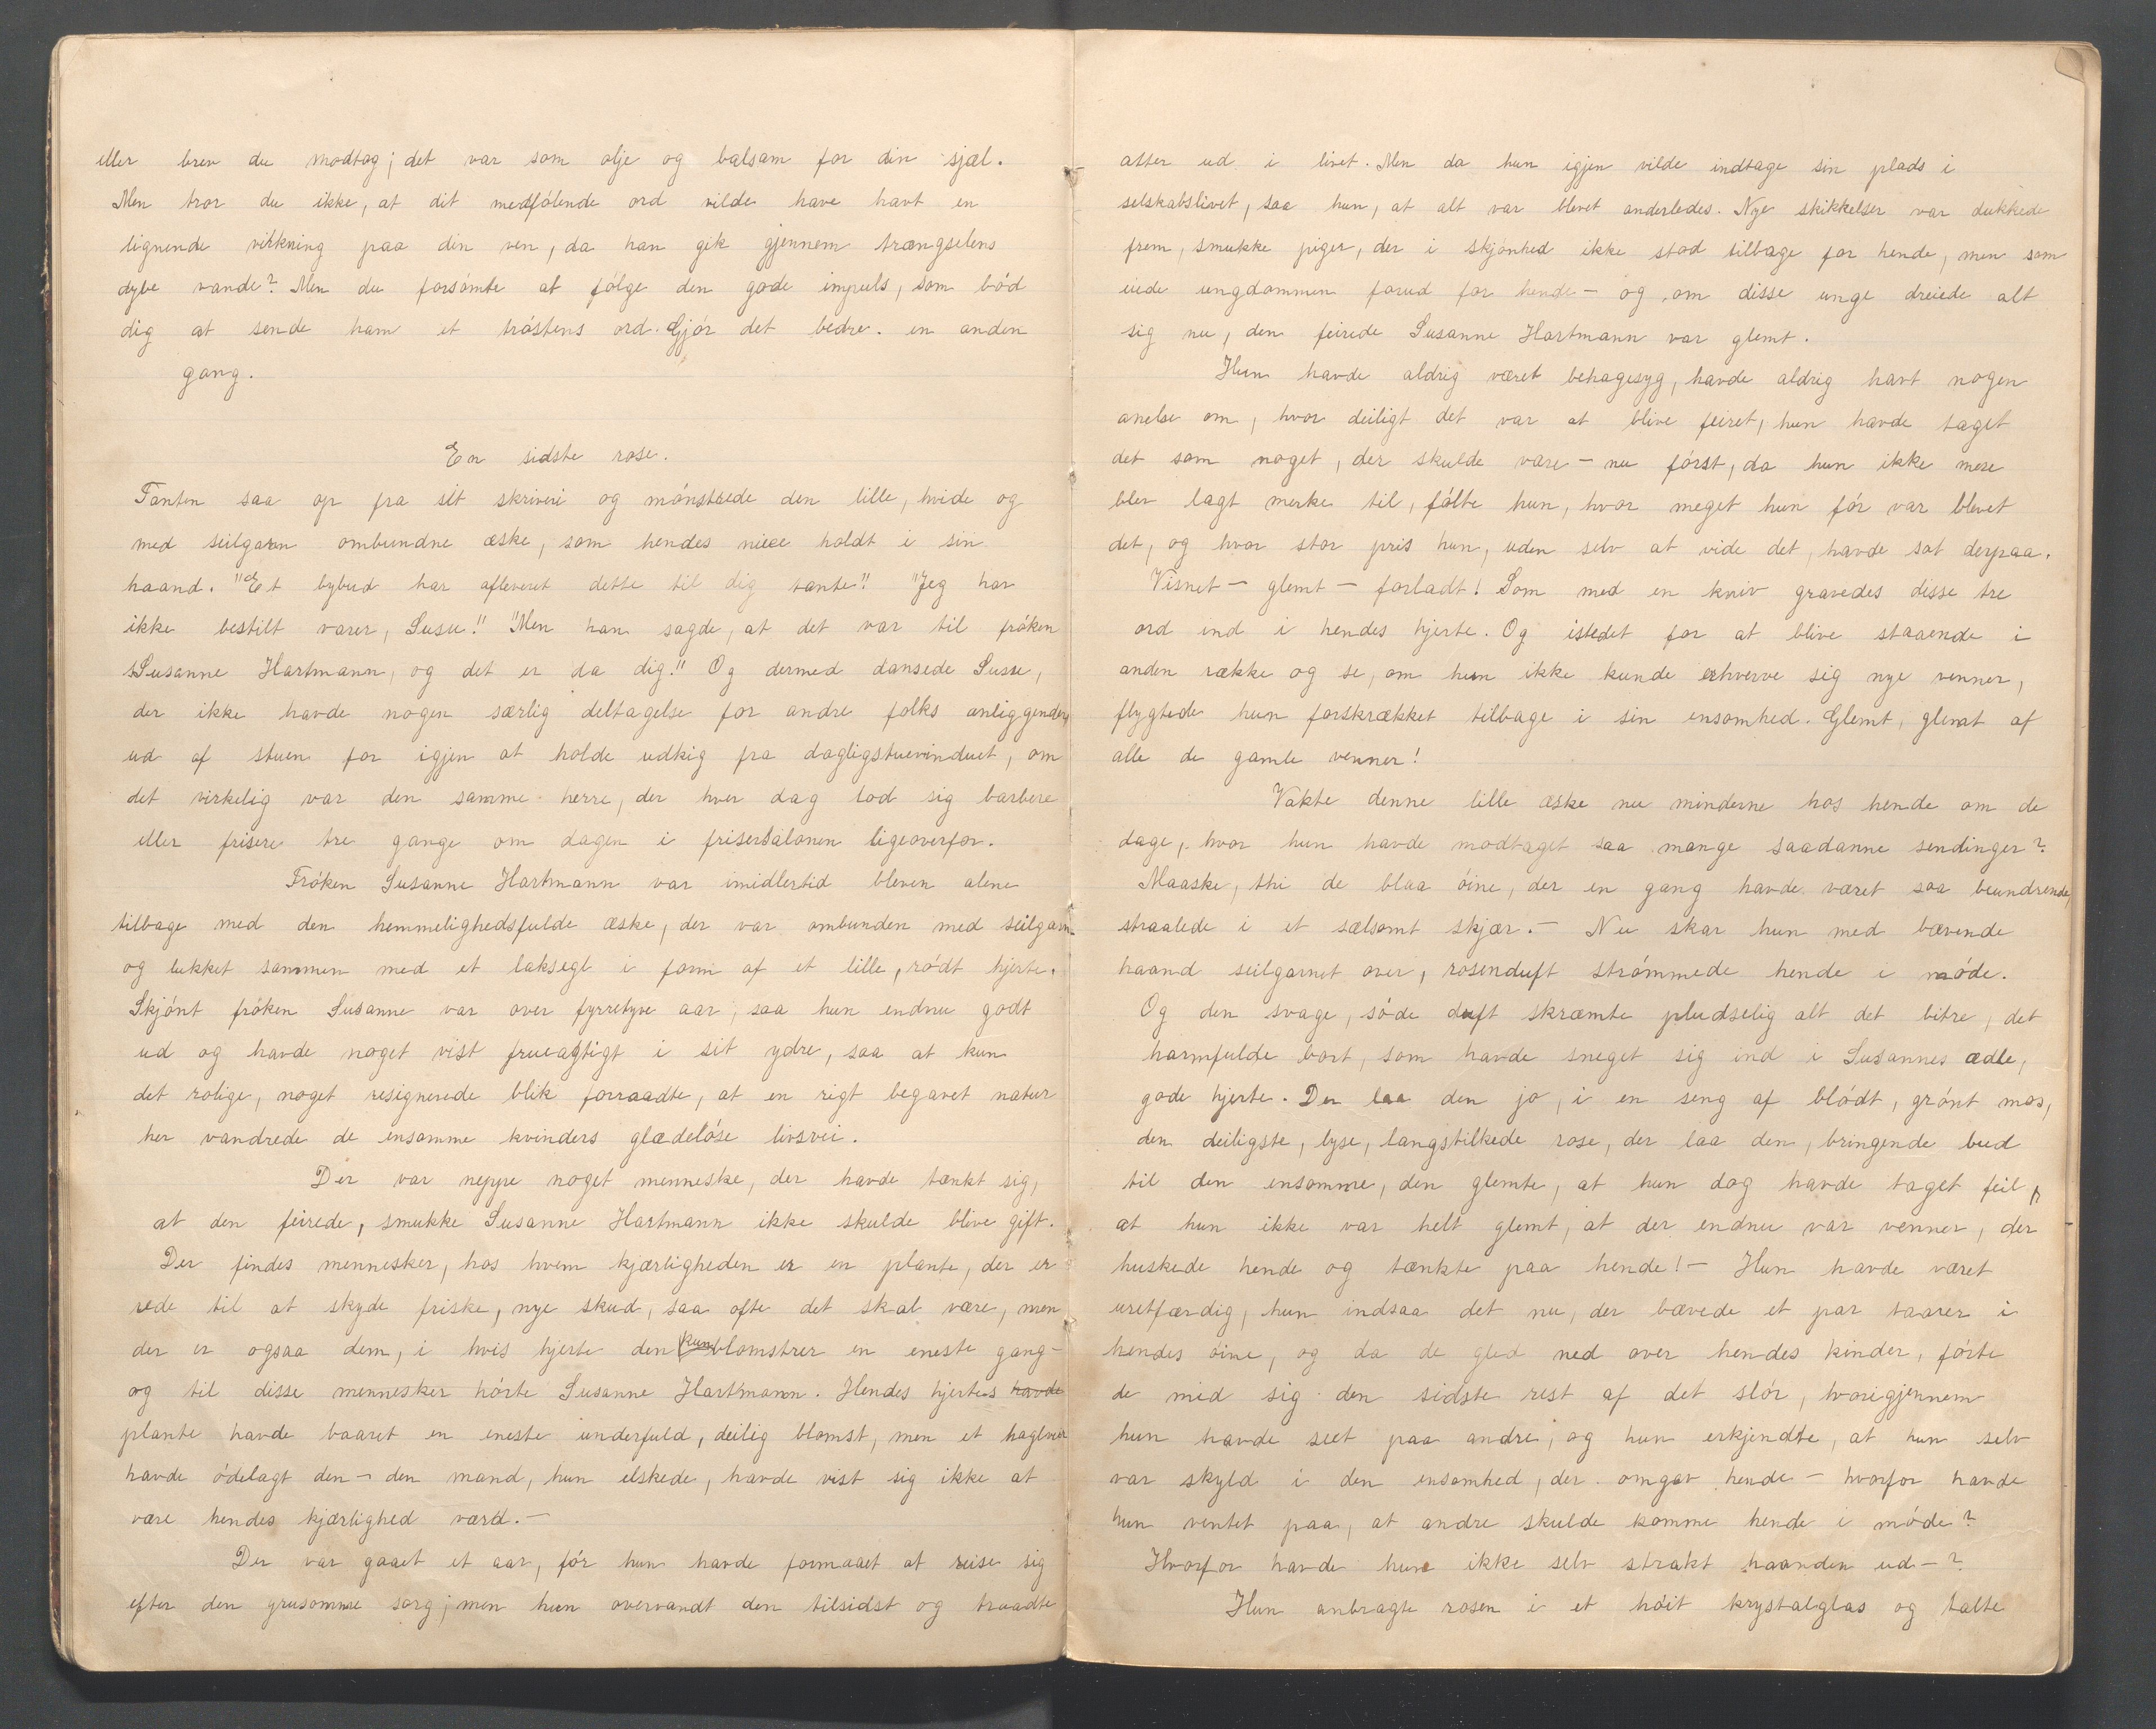 eller brev du modtog; det var som olje og balsam for din sjæl.
Men tror du ikke, at dit medfólende ord vilde have havt en
lignende virkning paa din ven, da han gik gjennem trængselens
dybe vande? Men du forsómte at fólge den gode impuls, som bód
dig at sende ham et tróstens ord. Gjór det bedre en anden
gang.
En sidste rose.
Tanten saa op fra sit skriveri og mónstrede den lille, hvide og
med seilgarn ombundne æske, som hendes niece holdt i sin
haand. "Et bybud har afleveret dette til dig tante". "Jeg har
ikke bestilt varer, Susu". "Men han sagde, at det var til fróken
Susanne Hartmann, og det er da dig". Og dermed dansede Susse,
der ikke havde nogen særlig deltagelse for andre folks anliggender
ud af stuen for igjen at holde udkig fra dagligstuevinduet, om
det virkelig var den samme herre, der hver dag lod sig barbere
eller frisere tre gange om dagen i frisersalonen ligeoverfor.
Fróken Susanne Hartmann var imidlertid bleven alene
tilbage med den hemmelighedsfulde æske, der var ombunden med seilgarn
og lukket sammen med et laksegl i form af et lille, ródt hjerte.
Skjónt fróken Susanne var over fyrretyve aar, saa hun endnu godt
ud og havde noget vist frueagtigt i sit ydre, saa at kun
det rolige, noget resignerede blik forraadte, at en rigt begavet natur
her vandrede de ensomme kvinders glædelóse livsvei.
Der var neppe noget menneske, der havde tænkt sig,
at den feirede, smukke Susanne Hartmann ikke skulde blive gift.
Der findes mennesker, hos hvem kjærligheden er en plante, der er
rede til at skyde friske, nye skud, saa ofte det skal være, men
der er ogsaa dem, i hvis hjerte den kun blomstrer en eneste gang-
og til disse mennesker hórte Susanne Hartmann. Hendes hjertes havde
plante havde baaret en eneste underfuld, deilig blomst, men et haglveir
havde ódelagt den - den mand, hun elskede, havde vist sig ikke at
være hendes kjærlighed værd.-
Der var gaaet et aar, fór hun havde formaaet at reise sig
efter den grusomme sorg; men hun overvandt den tilsidst og traadte
atter ud i livet. Men da hun igjen vilde indtage sin plads i
selskabslivet, saa hun, at alt var blevet anderledes. Nye skikkelser var dukkede
frem, smukke piger, der i skjónhed ikke stod tilbage for hende, men som
eiede ungdommen forud for hende - og om disse unge dreiede alt
sig nu, den feirede Susanne Hartmann var glemt.
Hun havde aldrig været behagesyg, havde aldrig havt nogen
anelse om, hvor deiligt det var at blive feiret, hun havde taget
det som noget, der skulde være - nu fórst, da hun ikke mere
blev lagt merke til, fólte hun, hvor meget hun fór var blevet
det, og hvor stor pris hun, uden selv at vide det, havde sat derpaa.
Visnet - glemt - forladt! Som med en kniv gravedes disse tre
ord ind i hendes hjerte. Og istedet for at blive staaende i
anden række og se, om hun ikke kunde erhverve sig nye venner,
flygtede hun forskrækket tilbage i sin ensomhed. Glemt, glemt af
alle de gamle venner!
Vakte denne lille æske nu minderne hos hende om de
dage, hvor hun havde modtaget saa mange saadanne sendinger?
Maaske, thi de blaa óine, der en gang havde været saa beundrende,
straalede i et sælsomt skjær. - Nu skar hun med bævende
haand seilgarnet over, rosenduft strómmede hende i móde.
Og den svage, sóde duft skræmte pludselig alt det bitre, det
harmfulde bort, som havde sneget sig ind i Susannes ædle,
gode hjerte. Der laa den jo, i en seng af blódt, grónt mos,
den deiligste, lyse, langstilkede rose, der laa den, bringende bud
til den ensomme, den glemte, at hun dog havde taget feil,
at hun ikke var helt glemt, at der endnu var venner, der
huskede hende og tænkte paa hende! - Hun havde været
uretfærdig, hun indsaa det nu, der bævede et par taarer i
hendes óine, og da de gled ned over hendes kinder, fórte
de med sig den sidste rest af det slór, hvorigjennem
hun havde seet paa andre, og hun erkjendte, at hun selv
var skyld i den ensomhed, der omgav hende - hvorfor havde
hun ventet paa, at andre skulde komme hende i móde?
Hvorfor havde hun ikke selv strakt haanden ud -?
Hun anbragte rosen i et hóit krystalglas og talte